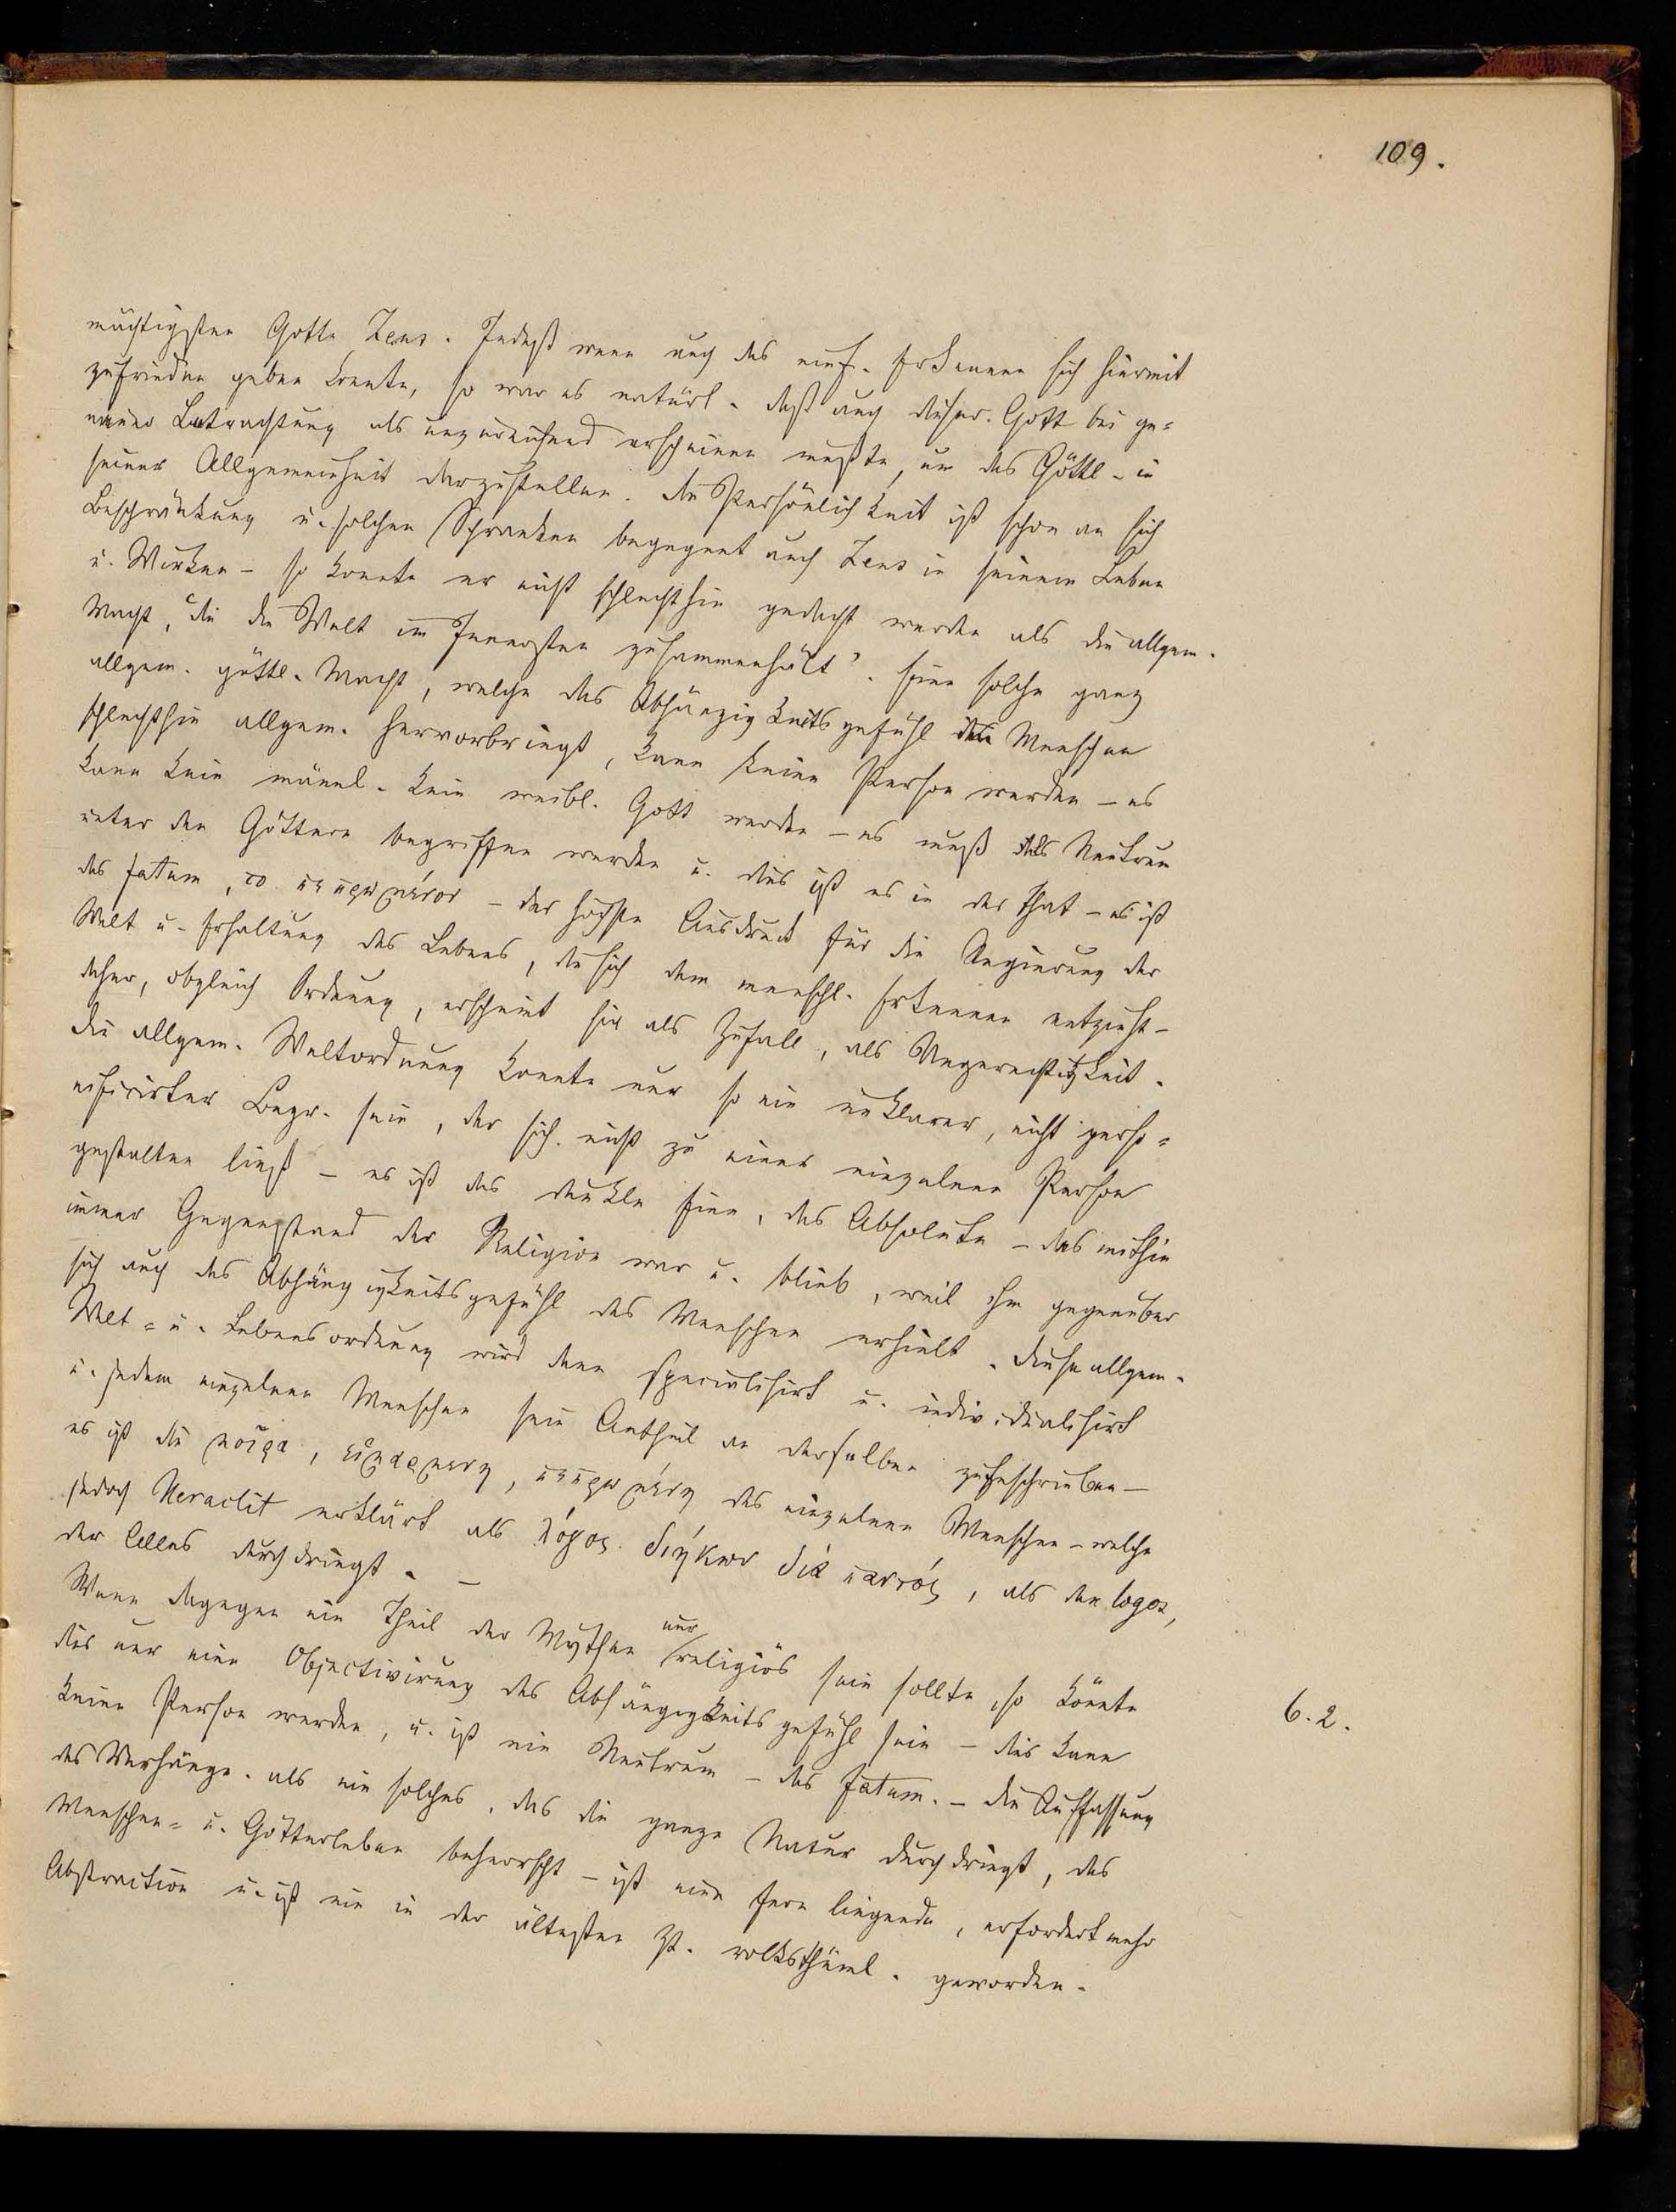 109.
mächtigsten Gotte Zeus. Indeß wenn auch das einf. Erkennen sich hiermit
zufrieden geben konnte, so war es natürl. daß auch dieser Gott bei ge=
nauer Betrachtung als unzureichend erscheinen mußte, um das Göttl. in
seiner Allgemeinheit darzustellen. Die Persönlichkeit ist schon an sich
Beschränkung u. solchen Schranken begegnet auch Zeus in seinem Leben
u. Wirken – so konnte er nicht schlechthin gedacht werden als die allgem.
Macht, „die die Welt im Innersten zusammenhält“. Eine solche ganz
allgem. göttl. Macht, welche das Abhängigkeitsgefühl des Menschen
schlechthin allgem. hervorbringt, kann keine Person werden – es
kann kein männl. kein weibl. Gott werden – es muß als Neutrum
unter den Göttern begriffen werden u. dies ist es in der That – es ist
das fatum, το πεπρωμένον – der höchste Ausdruck für die Regierung der
Welt u. Erhaltung des Lebens, die sich dem menschl. Erkennen entzieht –
daher, obgleich Ordnung, erscheint sie als Zufall, als Ungerechtigkeit.
Die allgem. Weltordnung konnte nur so ein unklarer, nicht perso=
nificirter Begr. sein, der sich nicht zu einer einzelnen Person
gestalten ließ – es ist das dunkle Eine, das Absolute – das mithin
immer Gegenstand der Religion war u. blieb, weil ihm gegenüber
sich auch das Abhängigkeitsgefühl des Menschen erhielt. Diese allgem.
Welt= u. Lebensordnung wird dann specialisirt u. individualisirt
u. jedem einzelnen Menschen sein Antheil an derselben zugeschrieben –
es ist die μοῖρα, εἱμαρμενη, πεπρωμένη des einzelnen Menschen – welche
jedoch Heraclit erklärt als λόγος διήκων διὰ παντός, als den logos,
der Alles durchdringt. –
Wenn dagegen ein Theil der Mythen nur religiös sein sollte, so könnte
dies nur eine Objectivirung des Abhängigkeitsgefühl sein – dies kann
keine Person werden, u. ist ein Neutrum – das fatum. – Die Auffassung
des Verhängn. als ein solches, das die ganze Natur durchdringt, das
Menschen= u. Götterleben beherrscht – ist eine fern liegende, erfordert mehr
Abstraction u. ist nie in der ältesten Zt. volksthüml. geworden.
6. 2.